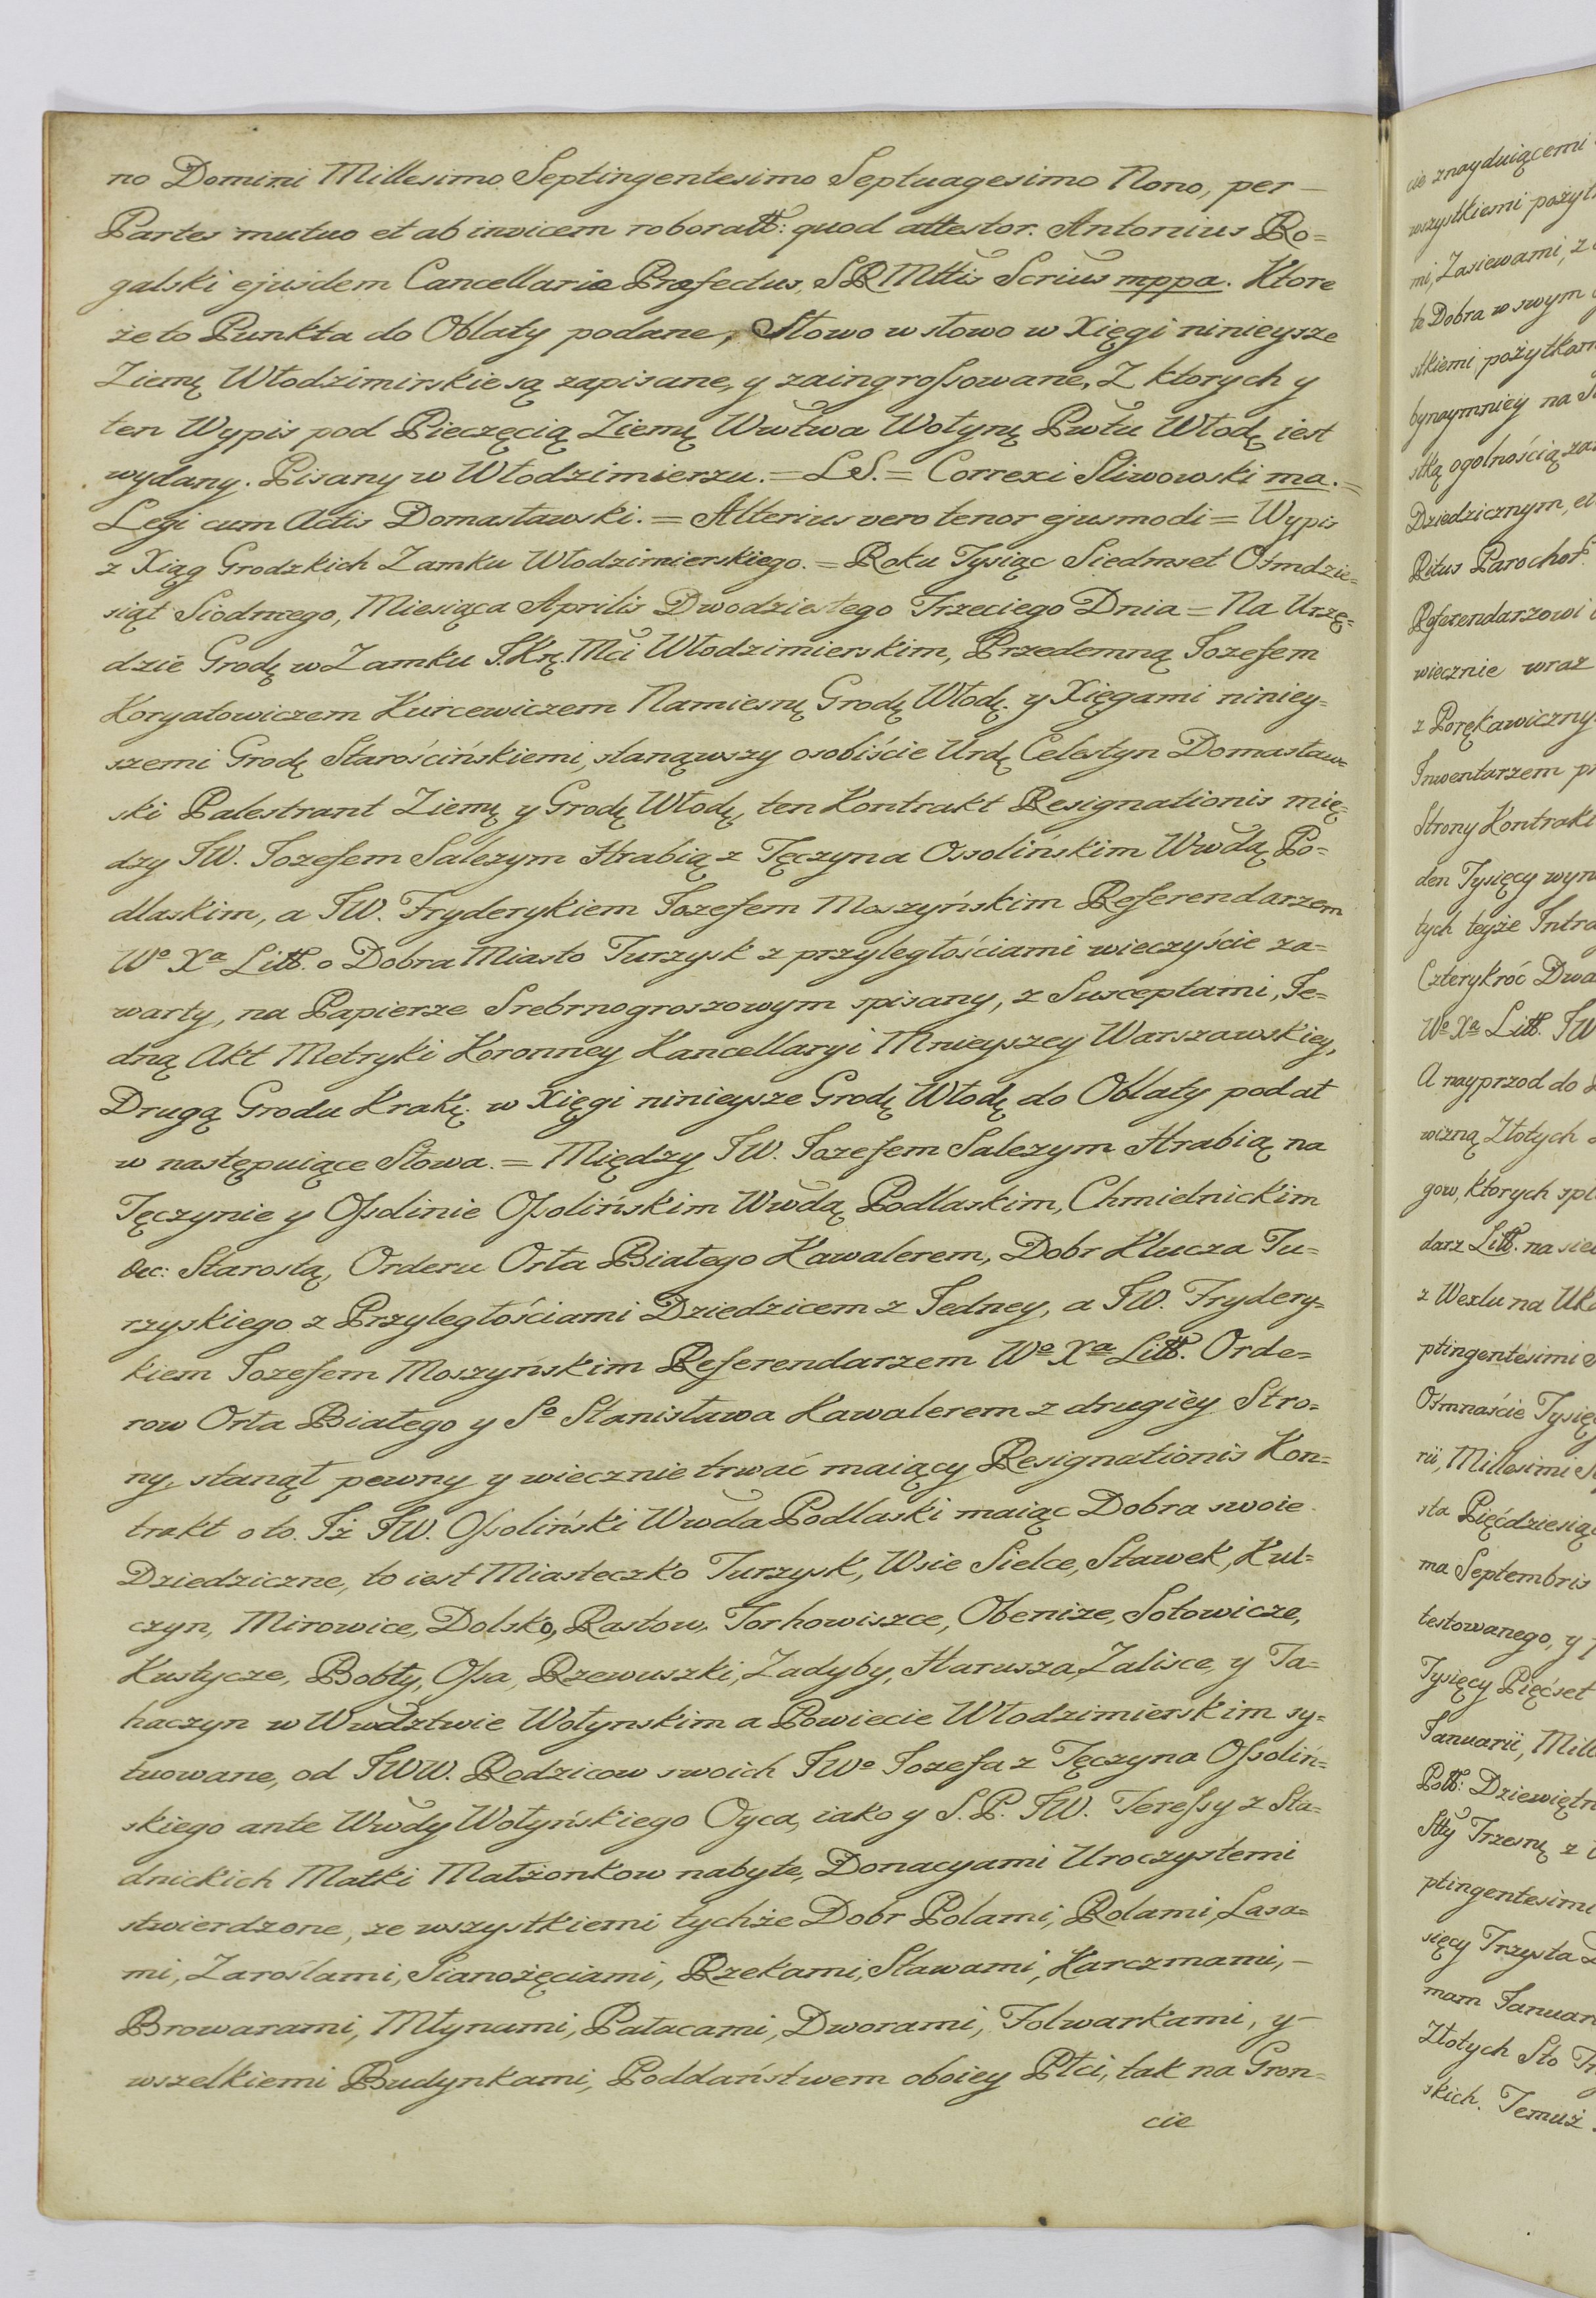 no Domini Millesimo Septingentesimo Septuagesimo Nono, per –
Partes mutuo et ab invicem roboratt: quod attestor. Antonius Ro=
galski ejusdem Cancellariæ Præfectus, SRMttis Scrius mppa. Ktore
że to Punkta do Oblaty podane, Słowo w słowo w Xięgi ninieysze
Ziemę Włodzimirskie są zapisane, y zaingrossowane, Z ktorych y
ten Wypis pod Pieczęcią Ziemę Wwtwa Wołynę Pwtu Włodę iest
wydany. Pisany w Włodzimierzu. = LS. = Correxi Sliwowski ma. =
Legi cum Actis Domasławski. = Alterius vero tenor ejusmodi = Wypis
z Xiąg Grodzkich Zamku Włodzimierskiego. = Roku Tysiąc Siedmset Osmdzie=
siąt Siodmego, Miesiąca Aprilis Dwodziestego Trzeciego Dnia = Na Urzę=
dzie Grodę w Zamku J.Krę. Mci Włodzimierskim, Przedemną Jozefem
Koryatowiczem Kurcewiczem Namiesnę Grodę Włodę. y Xięgami niniey=
szemi Grodę Starościńskiemi, stanąwszy osobiście Urdę Celestyn Domasław=
ski Palestrant Ziemę y Grodę Włodę, ten Kontrakt Resignationis mię=
dzy JW. Jozefem Salezym Hrabią z Tęczyna Ossolińskim Wwdą Po=
dlaskim, a JW. Fryderykiem Jozefem Moszyńskim Referendarzem
Wº Xª Litt. o Dobra Miasto Turzysk z przyległościami wieczyście za=
warty, na Papierze Srebrnogroszowym spisany, z Susceptami, Je=
dną Akt Metryki Koronney Kancellaryi Mnieyszey Warszawskiey,
Drugą Grodu Krakę. w Xięgi ninieysze Grodę Włodę do Oblaty podał
w następuiące Słowa. = Między JW. Jozefem Salezym Hrabią na
Tęczynie y Ossolinie Ossolińskim Wwdą Podlaskim, Chmielnickim
&c: Starostą, Orderu Orła Białego Kawalerem, Dobr Klucza Tu=
rzyskiego z Przyległościami Dziedzicem z Jedney, a JW. Frydery=
kiem Jozefem Moszyńskim Referendarzem Wº Xª Litt. Orde=
row Orła Białego y Sº Stanisława Kawalerem z drugiey Stro=
ny, stanął pewny y wiecznie trwać maiący Resignationis Kon=
trakt o to. Iż JW. Ossoliński Wwda Podlaski maiąc Dobra swoie
Dziedziczne, to iest Miasteczko Turzysk, Wsie Sielce, Stawek, Kul=
czyn, Mirowice, Dolsko, Rastow, Torhowiszce, Obeniże, Sołowicze,
Kustycze, Bobły, Ossa, Rzewuszki, Zadyby, Harusza, Zalisce, y Ta=
haczyn w Wwdztwie Wołynskim a Powiecie Włodzimierskim sy=
tuowane, od JWW. Rodzicow swoich JWº Jozefa z Tęczyna Ossoliń=
skiego ante Wwdy Wołyńskiego Oyca, iako y S.P. JW. Teressy z Sta=
dnickich Matki Małżonkow nabyte, Donacyami Uroczystemi
stwierdzone, ze wszystkiemi tychże Dobr Polami, Rolami, Lasa=
mi, Zaroślami, Sianożęciami, Rzekami, Stawami, Karczmami, –
Browarami, Młynami, Pałacami, Dworami, Folwarkami, y –
wszelkiemi Budynkami, Poddaństwem oboiey Płci, tak na Gron=
cie
cie znayduiącemi
wszystkiemi pożyt
mi, Zasiewami, z
te Dobra w swym
stkiemi pożytkam
bynaymniey na
stką ogolnością za
Dziedzicznym, et
Ritus Parochor
Referendarzowi
wiecznie wraz
z Porękawiczny
Inwentarzem pr
Strony Kontrakt
den Tysięcy wyn
tych teyże Intra
Czterykroć Dwa
Wº Xª Litt. JW
A nayprzod do
wizną Złotych
gow, ktorych spi
darz Litt. na sie
z Wexlu na Uk
ptingentesimi
Osmnaście Tysię
rii, Millesimi
sta Pięćdziesią
ma Septembris
testowanego, y
Tysięcy Pięćset
Januarii, Mill
Dziewiętn
Trzesnę z
ptingentesimi
sięcy Trzysta
mam Januar
Złotych Sto
skich. Temuż